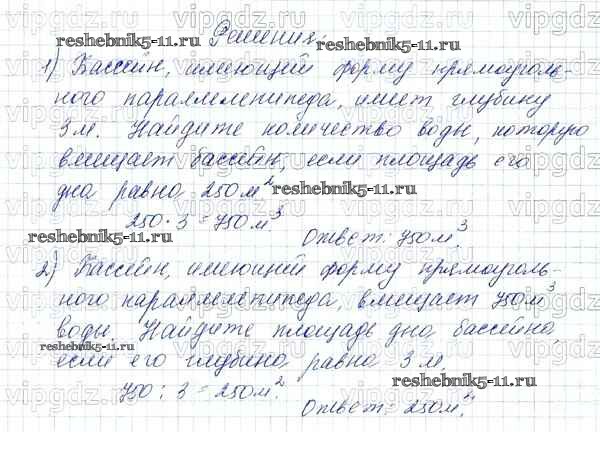 Решение.
1) Бассейн, имеющий форму прямоуголь-
ного параллелепипеда, имеет глубину
3 м. Найдите количество воды, которую
вмещает бассейн, если площадь его
дна равна 250 м²
250 · 3 = 750 м³
Ответ: 750 м³.
2) Бассейн, имеющий форму прямоуголь-
ного параллелепипеда, вмещает 750 м³
воды. Найдите площадь дна бассейна,
если его глубина равна 3 м.
750 : 3 = 250 м².
Ответ: 250 м².
reshebnik5-11.ru
reshebnik5-11.ru
reshebnik5-11.ru
reshebnik5-11.ru
reshebnik5-11.ru
reshebnik5-11.ru
vipgdz.ru